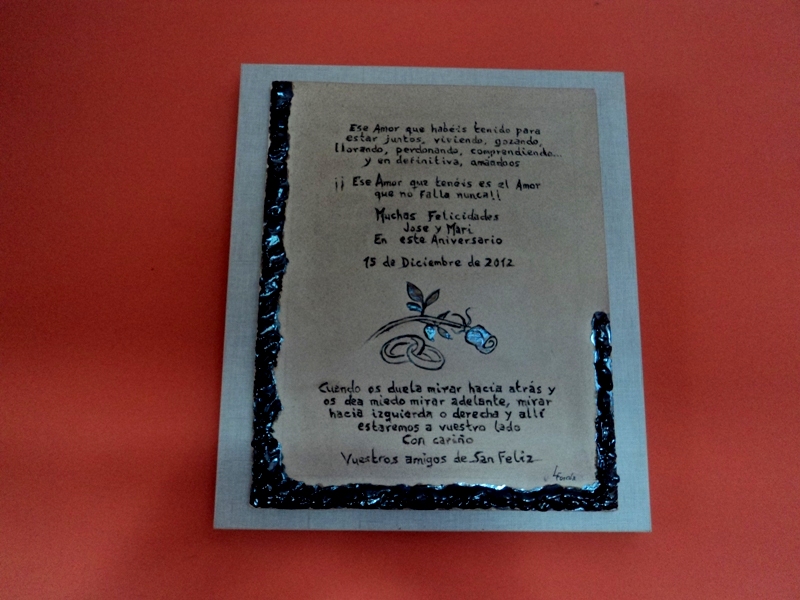 Ese Amor que habéis tenido para
estar juntos, viviendo, gozando,
llorando, perdonando, comprendiendo...
y en definitiva, amándoos
¡¡ Ese Amor que tenéis es el Amor
que no Falla nunca!!
Muchas Felicidades
Jose y Mari
En este Aniversario
15 de Diciembre de 2012
Cuando os duela mirar hacia atrás y
os dea miedo mirar adelante, mirar
hacia izquierda o derecha y allí
estaremos a vuestro lado
Con cariño
Vuestros amigos de San Feliz